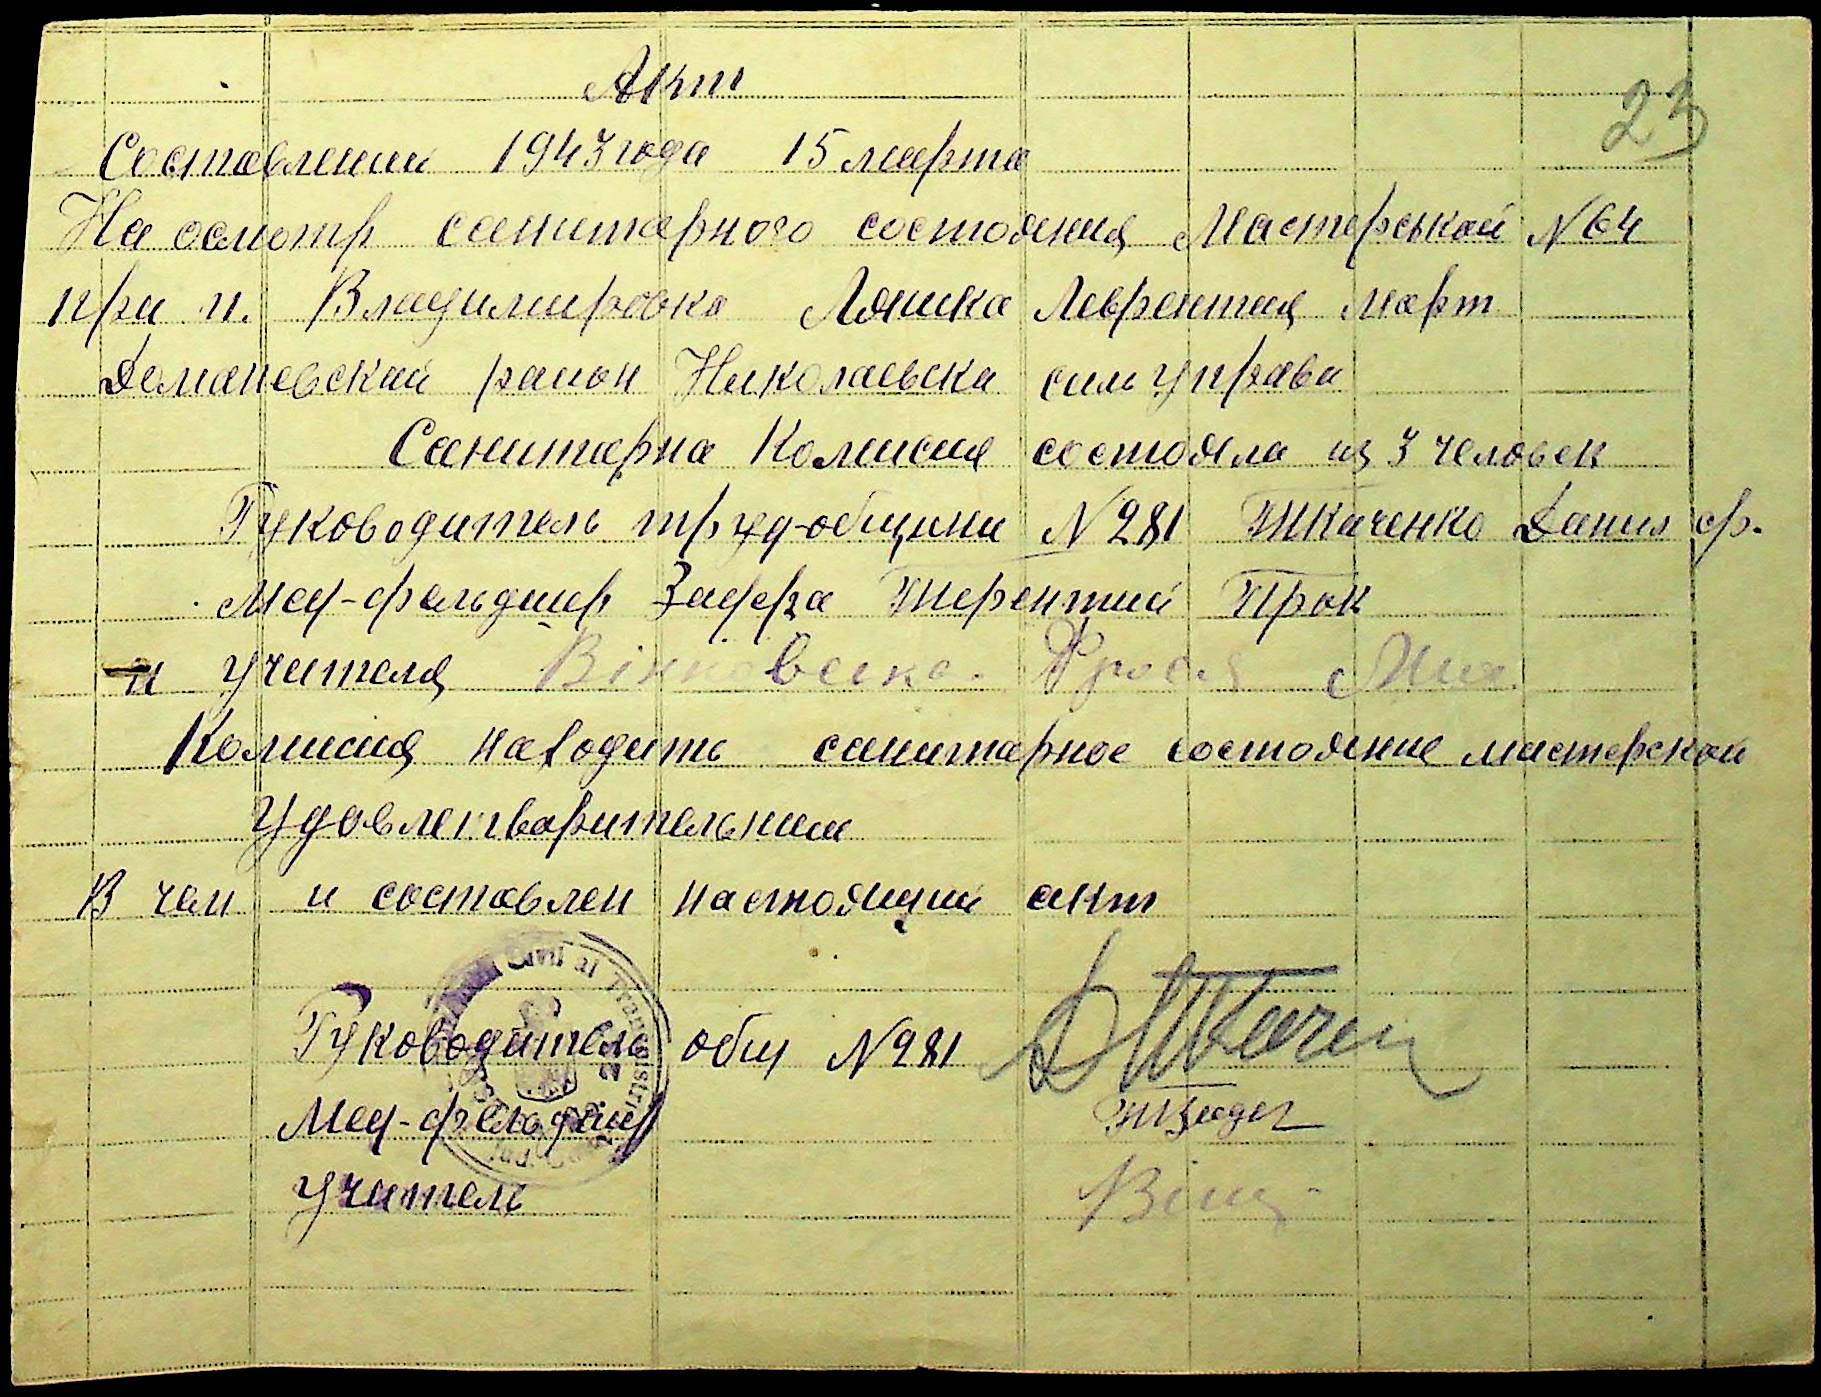 23
Акт
Составлений 1943 года 15 марта
На осмотр санитарного состояния Мастерськой №64
при п. Владимировка Ляшка Леврентия март
Доманевский район Николаевска силь управа
Санитарна Комисия состояла из 3 человек
Руководитель труд-общини №281 Ткаченко Данил ф.
Мед-фельдшер Терентий Прок
и учителя Фрося
Комисия находить санитарное состояние мастерской
Удовлетварительним
В чем и составлен настоящий акт
Civil al Transnistriei
Руководитель общ №281 ДТкачен
Мед-фельдшер
учитель